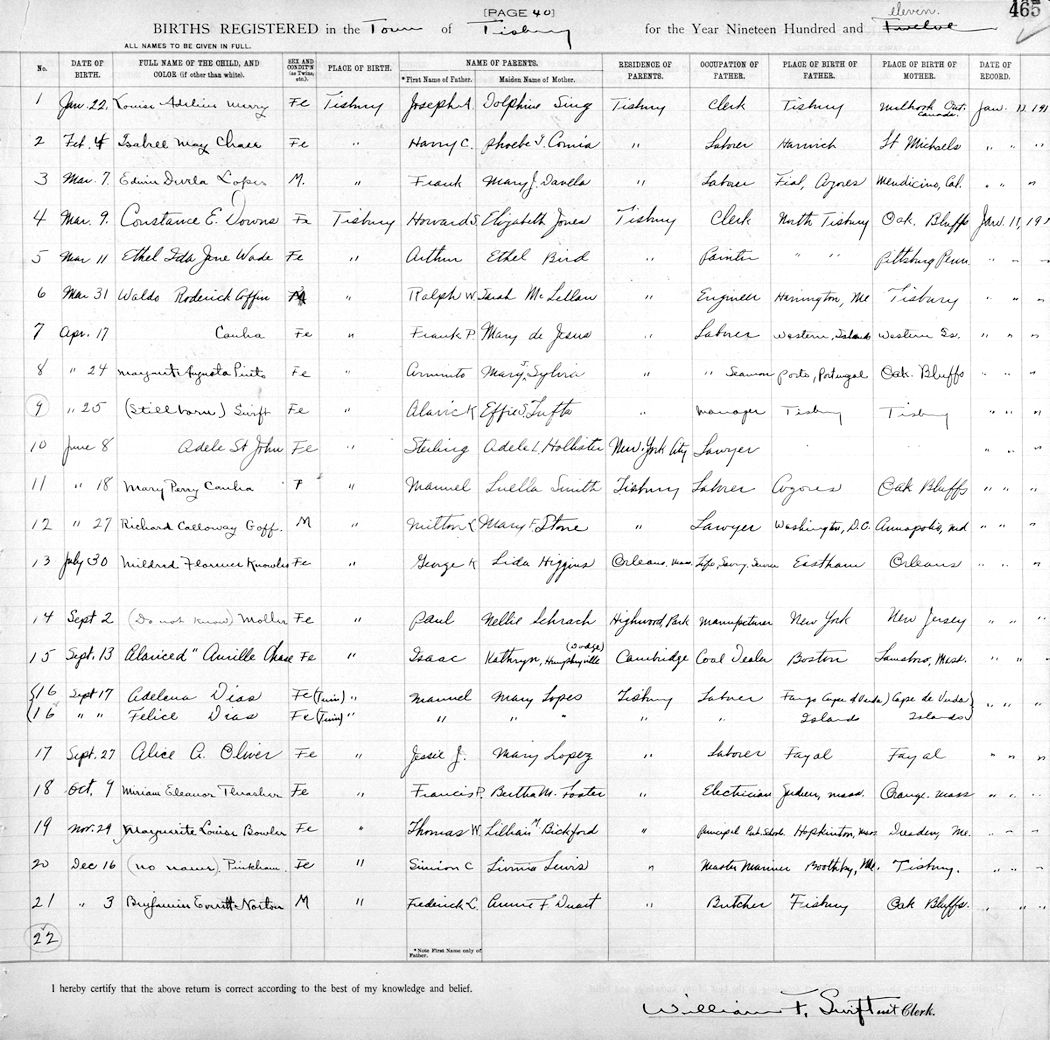 [PAGE 40]
465
BIRTHS REGISTERED in the Town of Tisbury for the Year Nineteen Hundred and Twelve eleven.
ALL NAMES TO BE GIVEN IN FULL.
No. DATE OF BIRTH. FULL NAME OF THE CHILD, AND COLOR (if other than white). SEX AND CONDIT'N (as Twins, etc.). PLACE OF BIRTH. NAME OF PARENTS. *First Name of Father. Maiden Name of Mother. RESIDENCE OF PARENTS. OCCUPATION OF FATHER. PLACE OF BIRTH OF FATHER. PLACE OF BIRTH OF MOTHER. DATE OF RECORD.
1 Jan. 22. Louise Fe Tisbury Joseph A. Dolphine Sing Tisbury Clerk Tisbury Ont. Canada. Jan. 11 191
2 Feb. 4 Isabell May Chase Fe " Harry C. Phoebe " Laborer Harwich St Michaels " " "
3 Mar. 7. Edwin Lopes M. " Frank Mary J. " Laborer Fial, Azores Mendicino, Cal. " " "
4 Mar. 9. Constance E. Downs Fe Tisbury Howard S. Elizabeth Jones Tisbury Clerk North Tisbury Oak Bluffs Jan. 11, 191
5 Mar 11 Ethel Ida Jane Wade Fe " Arthur Ethel Bird " Painter " " Pittsburg Penn " " "
6 Mar 31 Waldo Roderick Coffin M " Ralph W. Sarah McLellan " Engineer Harrington, Me Tisbury " " "
7 Apr. 17 Canha Fe " Frank P. Mary de Jesus " Laborer Western Islands Western Is. " " "
8 " 24 Augusta Pinto Fe " Mary J. Sylvia " " Seaman Porto, Portugal Oak Bluffs " " "
9 " 25 (Stillborn) Swift Fe " Alaric K Effie S. Tufts " Manager Tisbury Tisbury " " "
10 June 8 Adele St John Fe " Sterling Adele L Hollister New York City Lawyer " " "
11 " 18 Mary Perry Canha F " Manuel Luella Smith Tisbury Laborer Azores Oak Bluffs " " "
12 " 27 Richard Calloway Goff. M " Milton L Mary F. Stone " Lawyer Washington, D.C. Annapolis, Md " " "
13 July 30 Mildred Florence Knowles Fe " George K Lida Higgins Orleans, Mass. Life Saving Service Eastham Orleans " " "
14 Sept 2 (Do not know) Moller Fe " Paul Nellie Schrach Highwood, Park Manufacturer New York New Jersey " " "
15 Sept. 13 Chase Fe " Isaac Kathryn, (Dodge) Cambridge Coal Dealer Boston Mass. " " "
16 Sept 17 Adelena Dias Fe (Twin) " Manuel Mary Lopes Tisbury Laborer Cape de Verde Islands Cape de Verde Islands " " "
16 " " Felice Dias Fe (Twin) " " " " " "
17 Sept. 27 Alice A. Oliver Fe " Jessie J. Mary Lopez " Laborer Fayal Fayal " " "
18 Oct. 9 Miriam Eleanor Thrasher Fe " Francis P. Bertha M. Foster " Electrician Mass. Orange, Mass " " "
19 Nov. 29 Marguerite Louise Bowler Fe " Thomas W. Lillian M Bickford " Principal Hopkinton, Mass Dresden, Me. " " "
20 Dec 16 (no name) Pinkham Fe " Simion C Lewis " Master Mariner Boothbay, Me. Tisbury. " " "
21 " 3 Benjamin Everett Norton M " Frederick L. Annie F. Duart " Butcher Tisbury Oak Bluffs. " " "
22
*Note First Name only of Father.
I hereby certify that the above return is correct according to the best of my knowledge and belief.
William F. Swift Clerk.